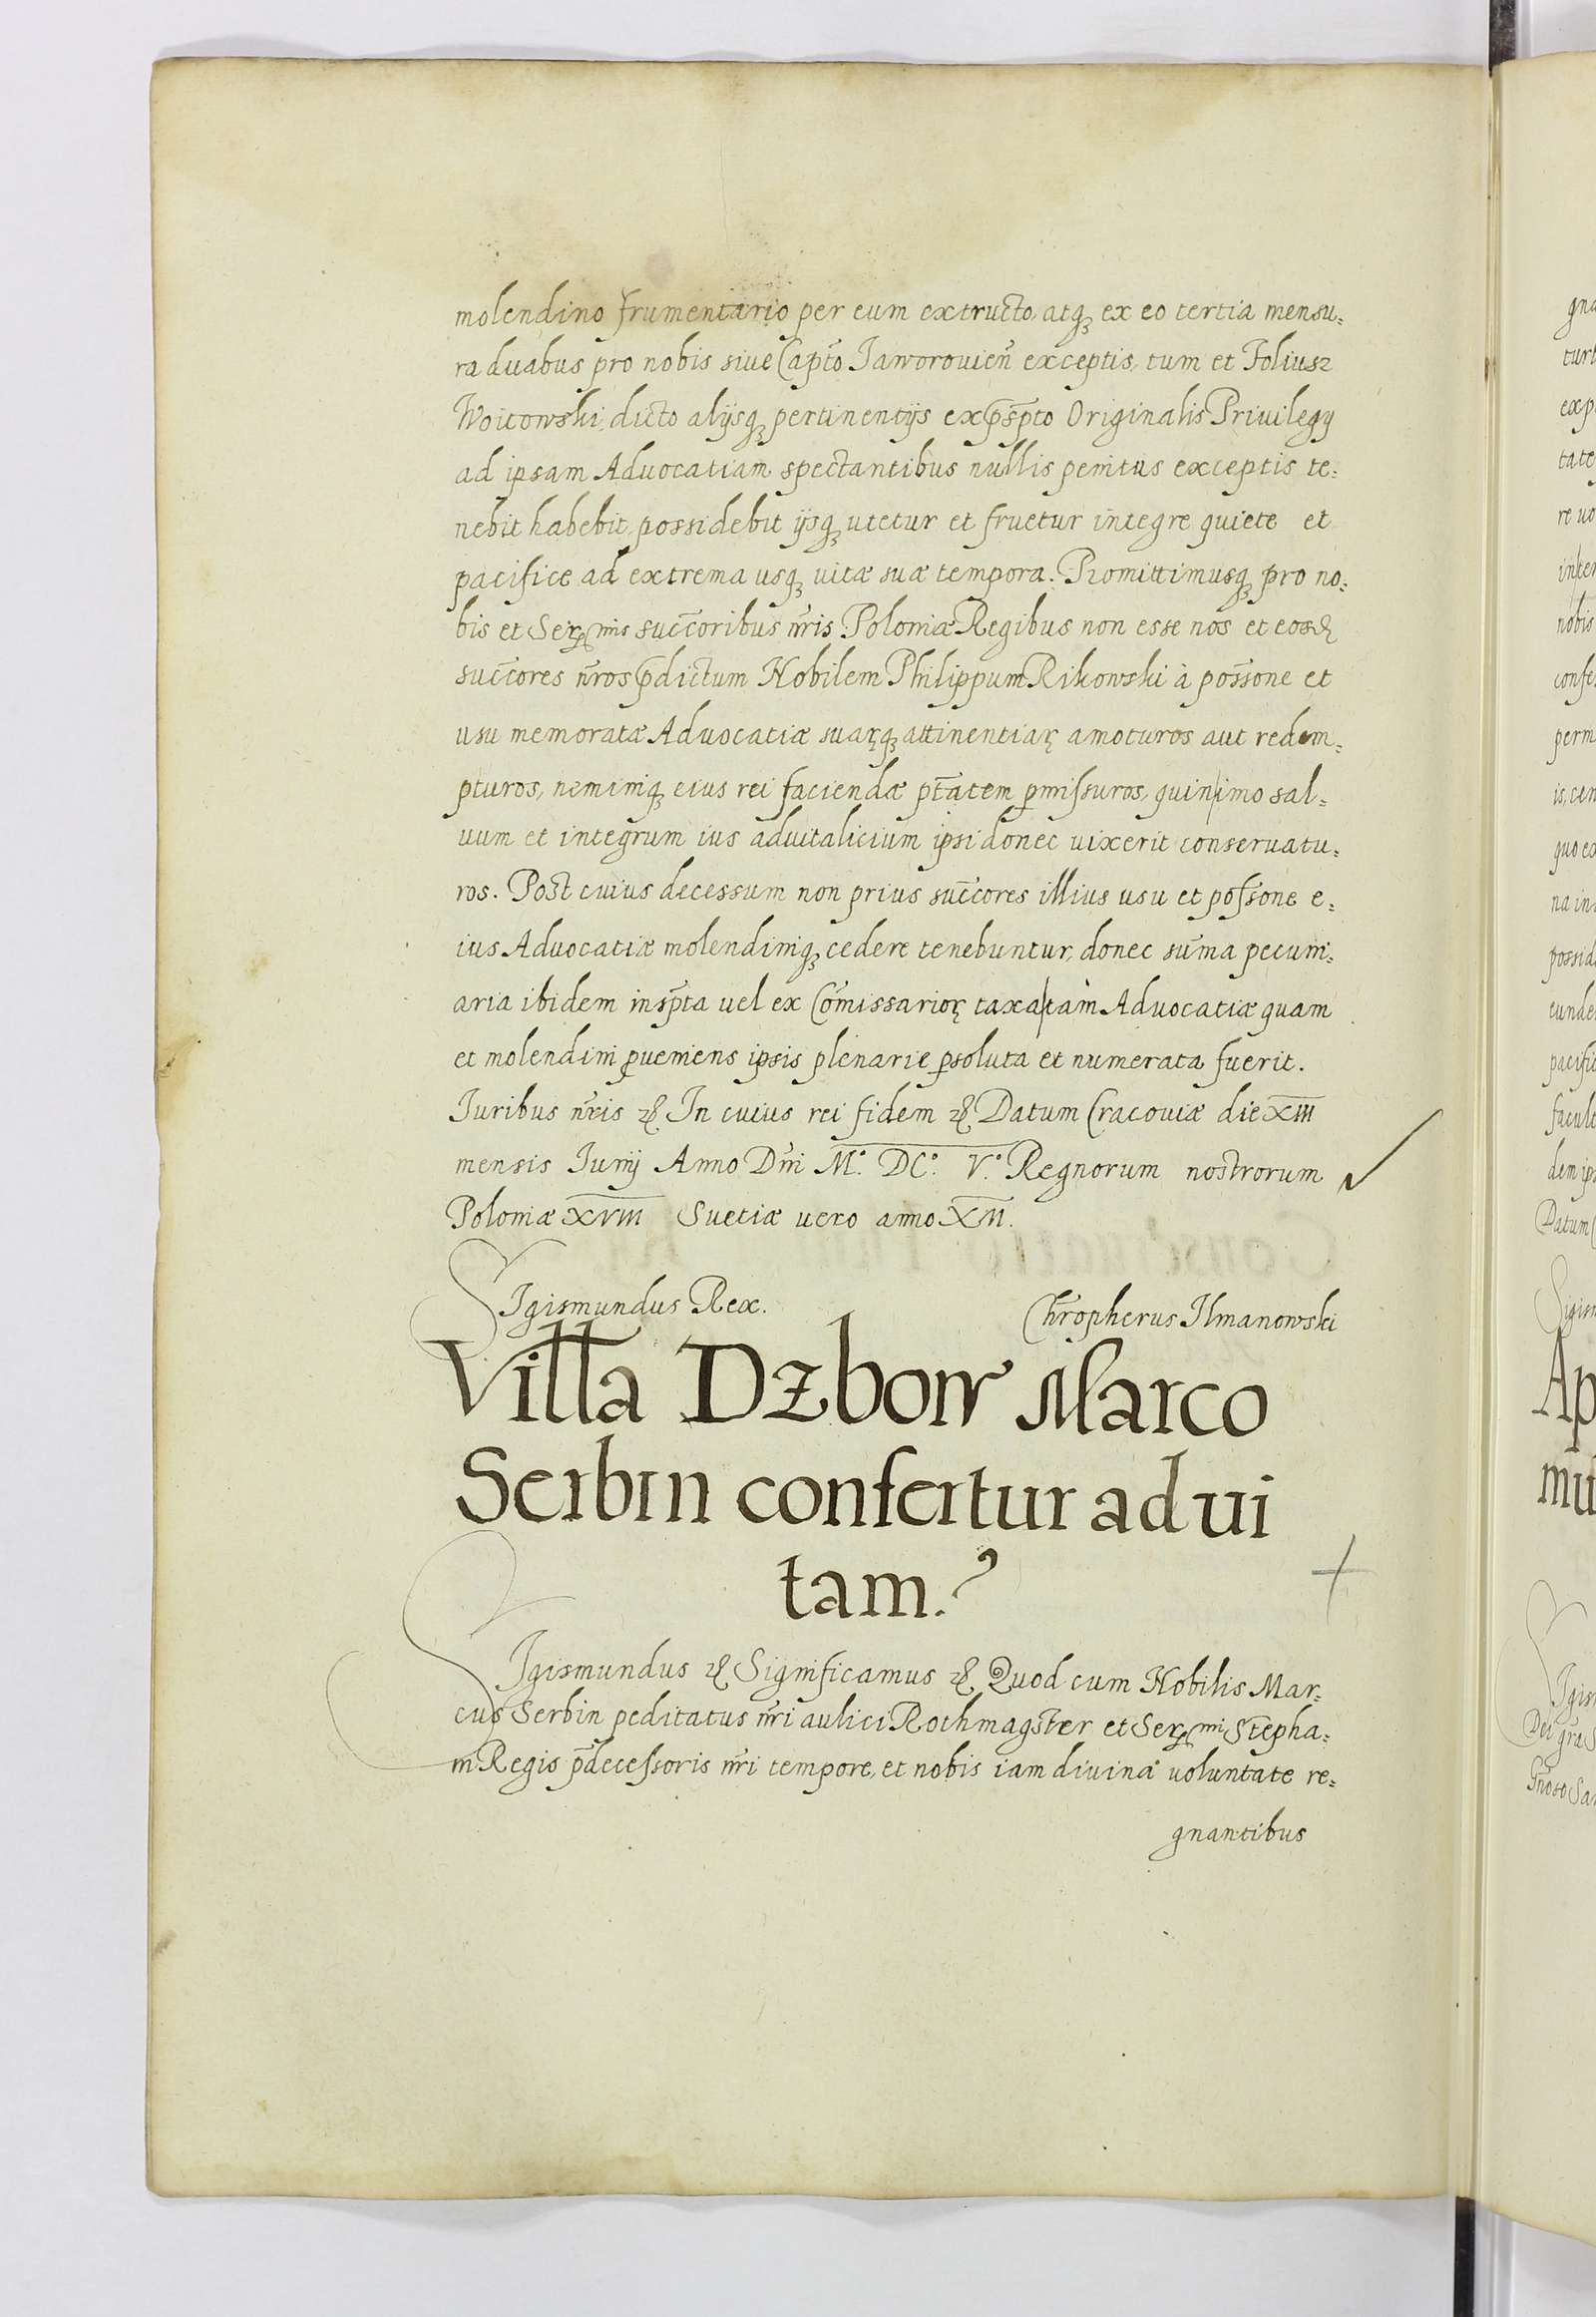 molendino frumentario per eum extructo, atq₃ ex eo tertia mensu-
ra duabus pro nobis siue Captõ Jaworouieñ exceptis, tum et Foliusz
Woitowski dicto alijsq₃ pertinentijs ex p̃sp̃to Originalis Priuilegij
ad ipsam Aduocatiam spectantibus nullis penitus exceptis te-
nebit habebit possidebit ijsq₃ utetur et fruetur integre quiete et
pacifice ad extrema usq₃ uitæ suæ tempora. Promittimusq₃ pro no-
bis et Serꝫ^mis succ̃oribus nr̃is Poloniæ Regibus non esse nos et eosdꝫ
succ̃ores nr̃os p̃dictum Nobilem Philippum Rikowski à poss̃one et
usu memoratæ Aduocatiæ suarꝫq₃ attinentiarꝫ amoturos aut redem-
pturos, neminiq₃ eius rei faciendæ ptãtem p̱missuros, quin imo sal-
uum et integrum ius aduitalicium ipsi donec uixerit conseruatu-
ros. Post cuius decessum non prius succ̃ores illius usu et poss̃one e-
ius Aduocatiæ molendiniq₃ cedere tenebuntur, donec sum̃a pecuni-
aria ibidem insp̃ta uel ex Com̃issariorꝫ taxa tam Aduocatiæ quam
et molendini ꝓueniens ipsis plenarie p̱soluta et numerata fuerit.
Iuribus nr̃is ꝛꝭ. In cuius rei fidem ꝛꝭ Datum Cracouiæ die XIII
mensis Iunij Anno Dñi M.° DC.° V.° Regnorum nostrorum
Poloniæ XVIII Suetiæ uero anno XII.
Sigismundus Rex. Chr̃opherus Ilmanowski
Villa Dzbow Marco
Serbin confertur ad ui
tam.
Sigismundus ꝛꝭ Significamus ꝛꝭ Quod cum Nobilis Mar-
cus Serbin peditatus nr̃i aulici Rothmagster et Serꝫ^mi Stepha-
ni Regis p̃decessoris nr̃i tempore, et nobis iam diuina uoluntate re-
gnantibus